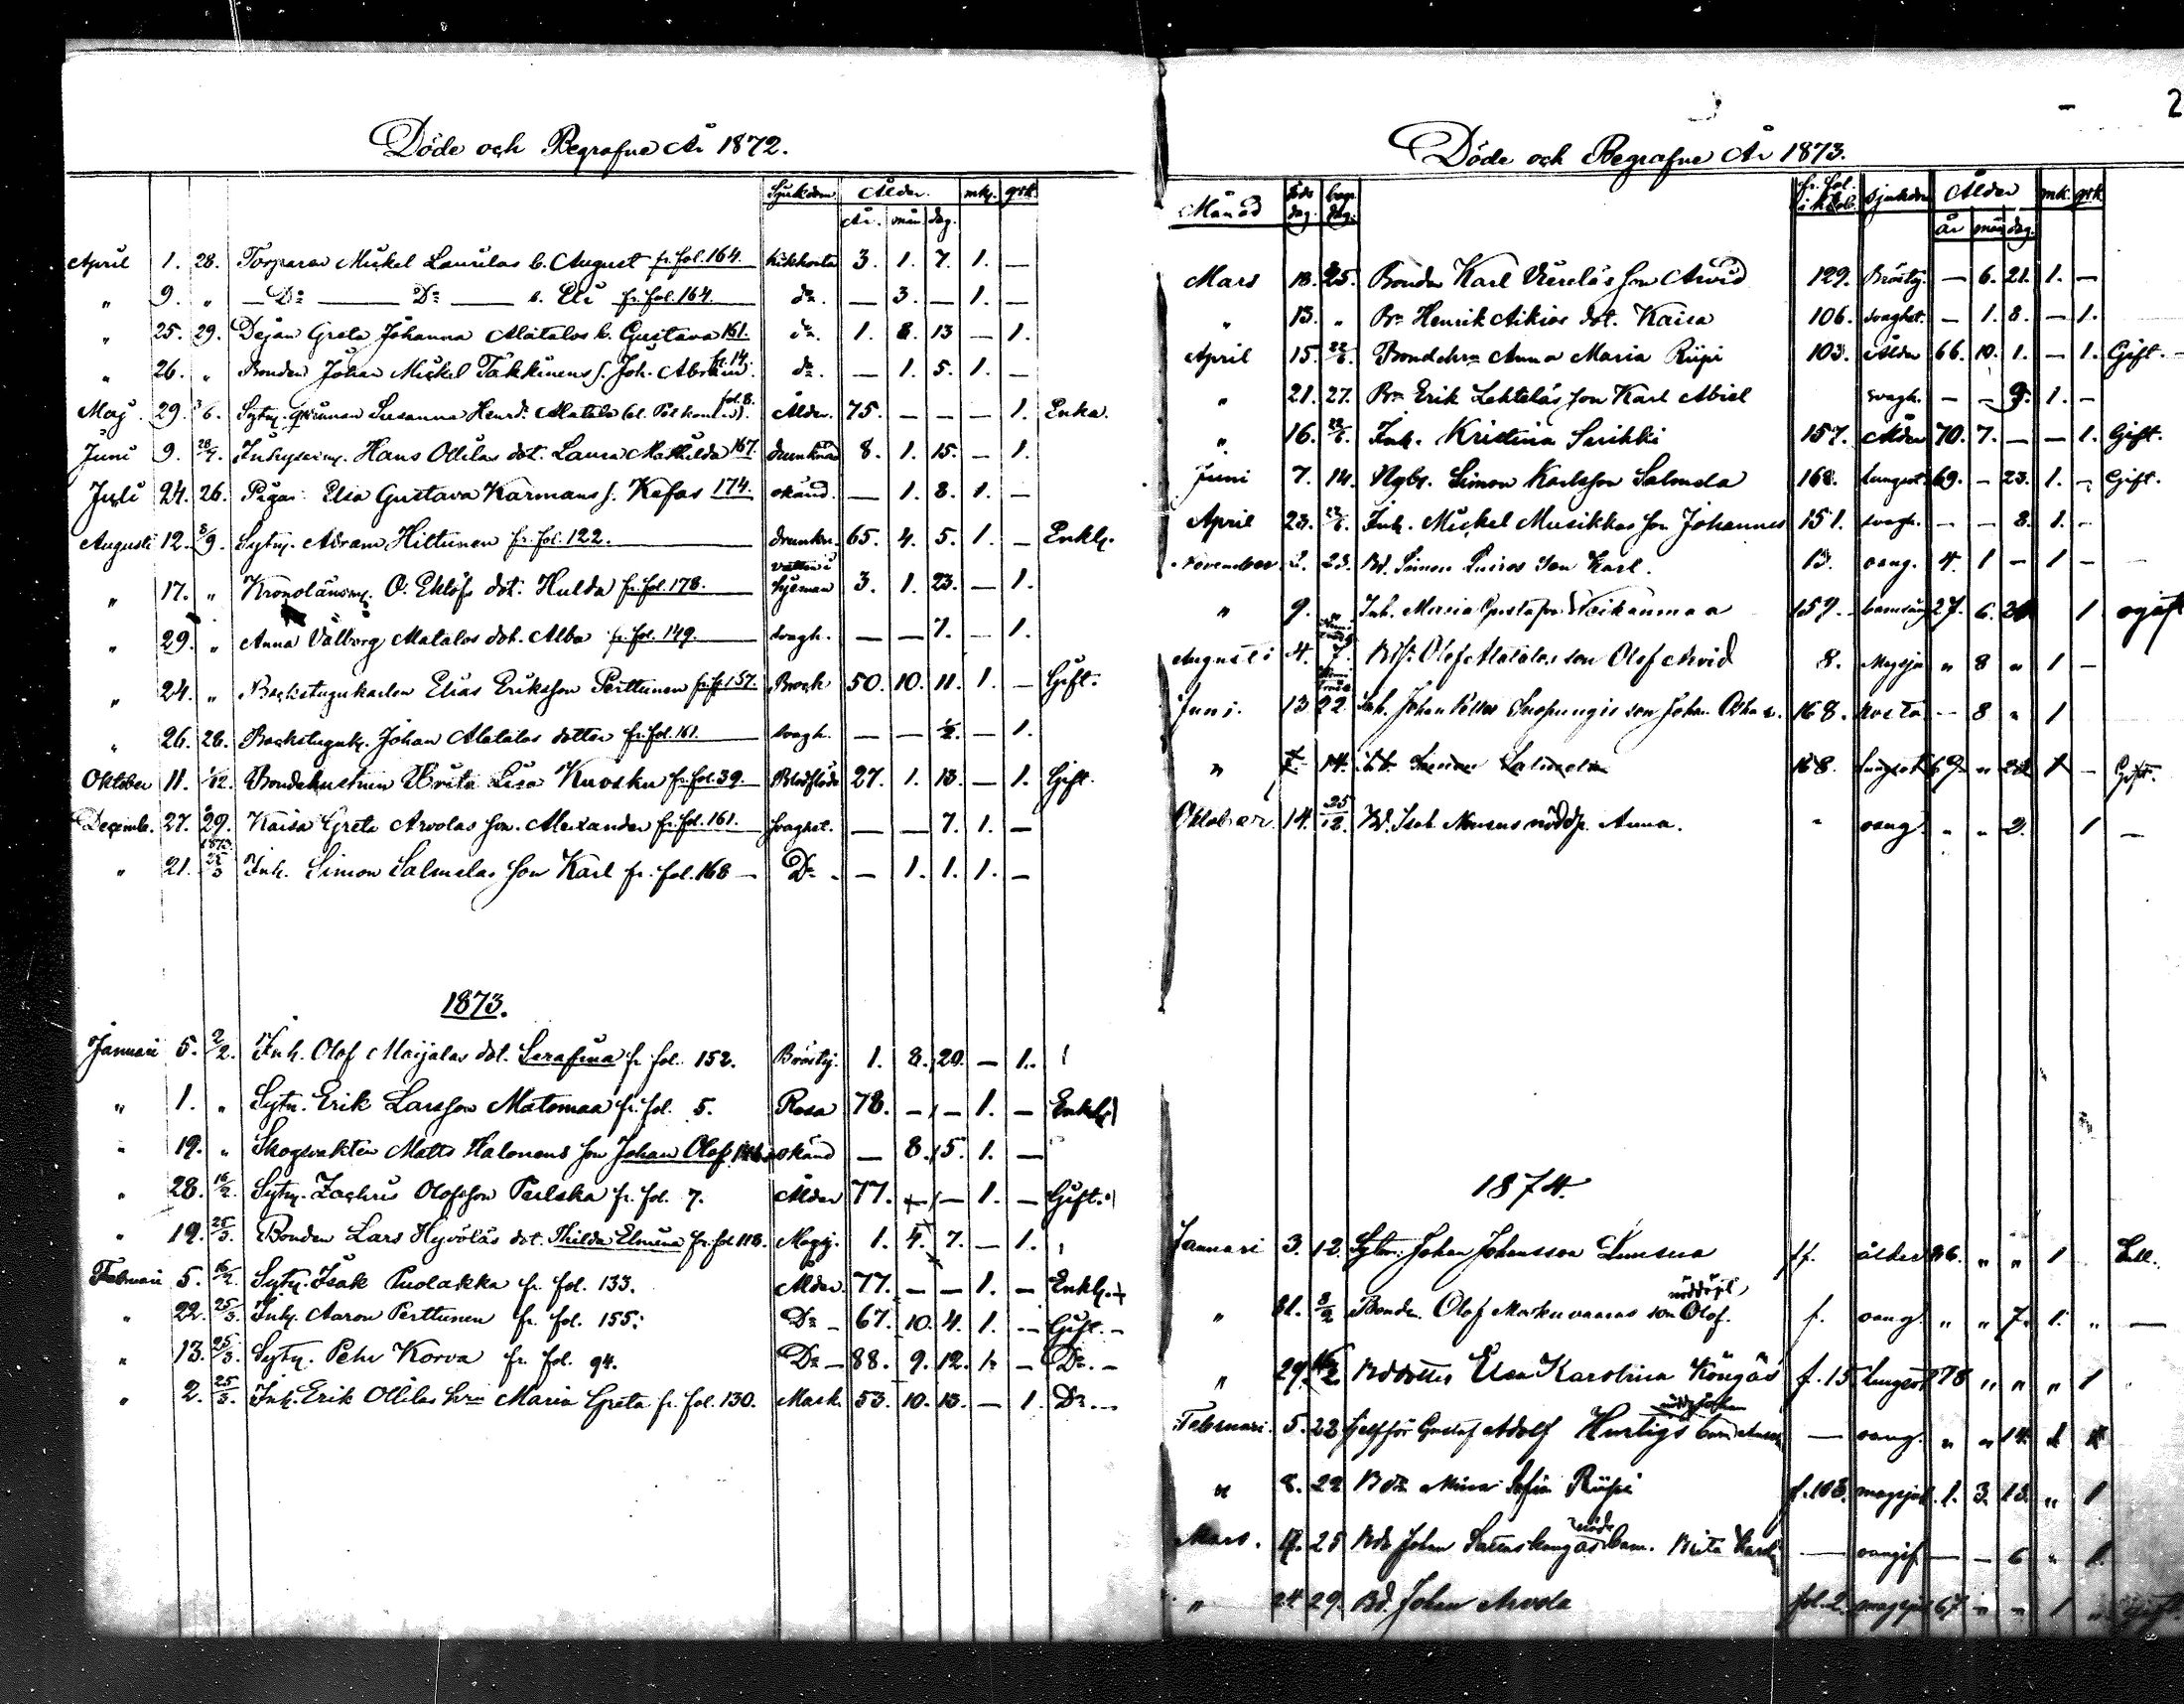 Döde och Begrafne År 1872.
Sjukdom. Ålder. mk. qvk.
År. mån. dag.
April 1. 28. Torparen Mickel Laurilas b. August fr. fol. 164. Kikhosta 3. 1. 7. 1. —
" 9. " — Do — Do — s. Eli fr. fol. 164. do. — 3. — 1. —
" 25. 29. Dejan Greta Johanna Alatalos b. Gustava 161. do. 1. 8. 13 — 1.
" 26. " Bonden Johan Mickel Takkinens s. Joh. Abraham fr. 14. do. — 1. 5. 1. —
Maj 29. 6. Sytn. qvinnan Susanna Henrd. Alatalo fol. 8. Ålder. 75. — — — 1. Enka.
Juni 9. 28/7. Inhysesm. Hans Ollilas dot. Laura Mathilda 167. drunknad 8. 1. 15. — 1.
Juli 24. 26. Pigan Elsa Gustava Karmans s. Kafas 174. okänd. — 1. 8. 1. —
Augusti 12. 8/9. Sytn. Abram Hiltunen fr. fol. 122. drunkn. 65. 4. 5. 1. — Enkl.
" 17. " Kronolänsm. O. Eklöfs dot. Hulda fr. fol. 178. vatten i hjernan 3. 1. 23. — 1.
" 29. " Anna Valborg Matalas dot. Alba fr. fol. 149. svagh. — — 7. — 1.
" 24. " Backstugukarlen Elias Eriksson Perttunen fr. f. 157. Brock 50. 10. 11. 1. — Gift.
" 26. 28. Backstuguk. Johan Alatalos dotter fr. fol. 161. svagh. — — ½. — 1.
Oktober 11. 1/12. Bondehustrun Brita Lisa Kuosku fr. fol. 39. Blodflöde 27. 1. 13. — 1. Gift.
Decemb. 27. 29. Kaisa Greta Arvolas son. Alexander fr. fol. 161. svaghet. — — 7. 1. —
" 21. 1873 25/3 Inh. Simon Salmelas son Karl fr. fol. 168 — Do. — 1. 1. 1. —
1873.
Januari 5. 2/2. Inh. Olof Maijalas dot. Serafina fr. fol. 152. Bröstsj. 1. 8. 20. — 1.
" 1. " Sytn. Erik Larsson Matomaa fr. fol. 5. Rosa 78. — — 1. — Enkl.
" 19. " Skogsvakten Matts Halonens son Johan Olof okänd — 8. 5. 1. —
" 28. 16/2. Sytn. Zachris Olofsson Perlska fr. fol. 7. Ålder 77. — — 1. — Gift.
" 19. 25/3. Bonden Lars Hyvöläs dot. Thilda Elmina fr. fol 118. Magsj. 1. 4. 7. — 1.
Februari 5. 16/2. Sytn. Isak Puolakka fr. fol. 133. Ålder. 77. — — 1. — Enkl.
" 22. 25/3. Inh. Aaron Perttunen fr. fol. 155. Do — 67. 10. 4. 1. — Gift.
" 13. 25/3. Sytn. Pehr Korva fr. fol. 94. Do — 88. 9. 12. 1. — Do. —
" 2. 25/3. Inh. Erik Ollilas hru Maria Greta fr. fol. 130. Mask. 53. 10. 13. — 1. Do. —
2
Döde och Begrafne År 1873.
Månad död dag. begr. dag. fr. fol. i K.bok. Sjukdom Ålder mk. qvk
år mån dag.
Mars 13. 25. Bonden Karl Viereläs son Arvid 129. Bröstsj. — 6. 21. 1. —
" 13. " Bn Henrik Aikios dot. Kaisa 106. svaghet. — 1. 8. — 1.
April 15. 22/6. Bondehru Anna Maria Riipi 103. Ålder 66. 10. 1. — 1. Gift. —
" 21. 27. Bn Erik Lehteläs son Karl Abiel svagh. — — 9. 1. —
" 16. 22/6. Inh. Kristina Surikki 157. Ålder 70. 7. — — 1. Gift.
Juni 7. 14. Nybs. Simon Karlsson Salmela 168. Lungsot 69. — 23. 1. — Gift.
April 23. 22/6. Inh. Mickel Musikkas son Johannes 151. svagh. — — 8. 1. —
November 2. 23. Bd. Simon son Karl. 13. svag. 4. 1 — 1 —
" 9. " Inh. Maria Gustafva Neikanmaa 159. barnsäng 27. 6. 1 ogift
Augusti 4. 7. Olof Alatalos son Olof Arvid 8. Magsju " 8 " 1 —
Juni. 13 22. Inh. Johan Petter son Johan Oskar. 168. hosta — 8 " 1
" 7. 14. Simon Salmela 168. Lungsot 69. " 23 1 — Gift.
Oktober 14. 25/12. Bd. Isak nöddp. Anna. " svag " " 2. 1 —
1874.
Januari 3. 12. Sytn. Johan Johansson ålder " " 1
" 31. 8/2 Bonden Olof Markuvaaras son Olof. nöddöpt f. svag. " " 7. 1. " —
" 29. Bddotter Elsa Karolina Köngäs f. 15. lungsot 78 " " " 1
Februari. 5. 22 Gustaf Adolf Hurtigs — svag. " " 14.
" 8. 22 Bdn Mina Sofia Riipi f. 103. magsjuk. 1. 3. 13. " 1
Mars. 25 Bdn Johan barn. Brita — — — 6 " 1.
" 24 29. Bd. Johan Arvola fol. 2. magsju 67 " " 1 " Gift